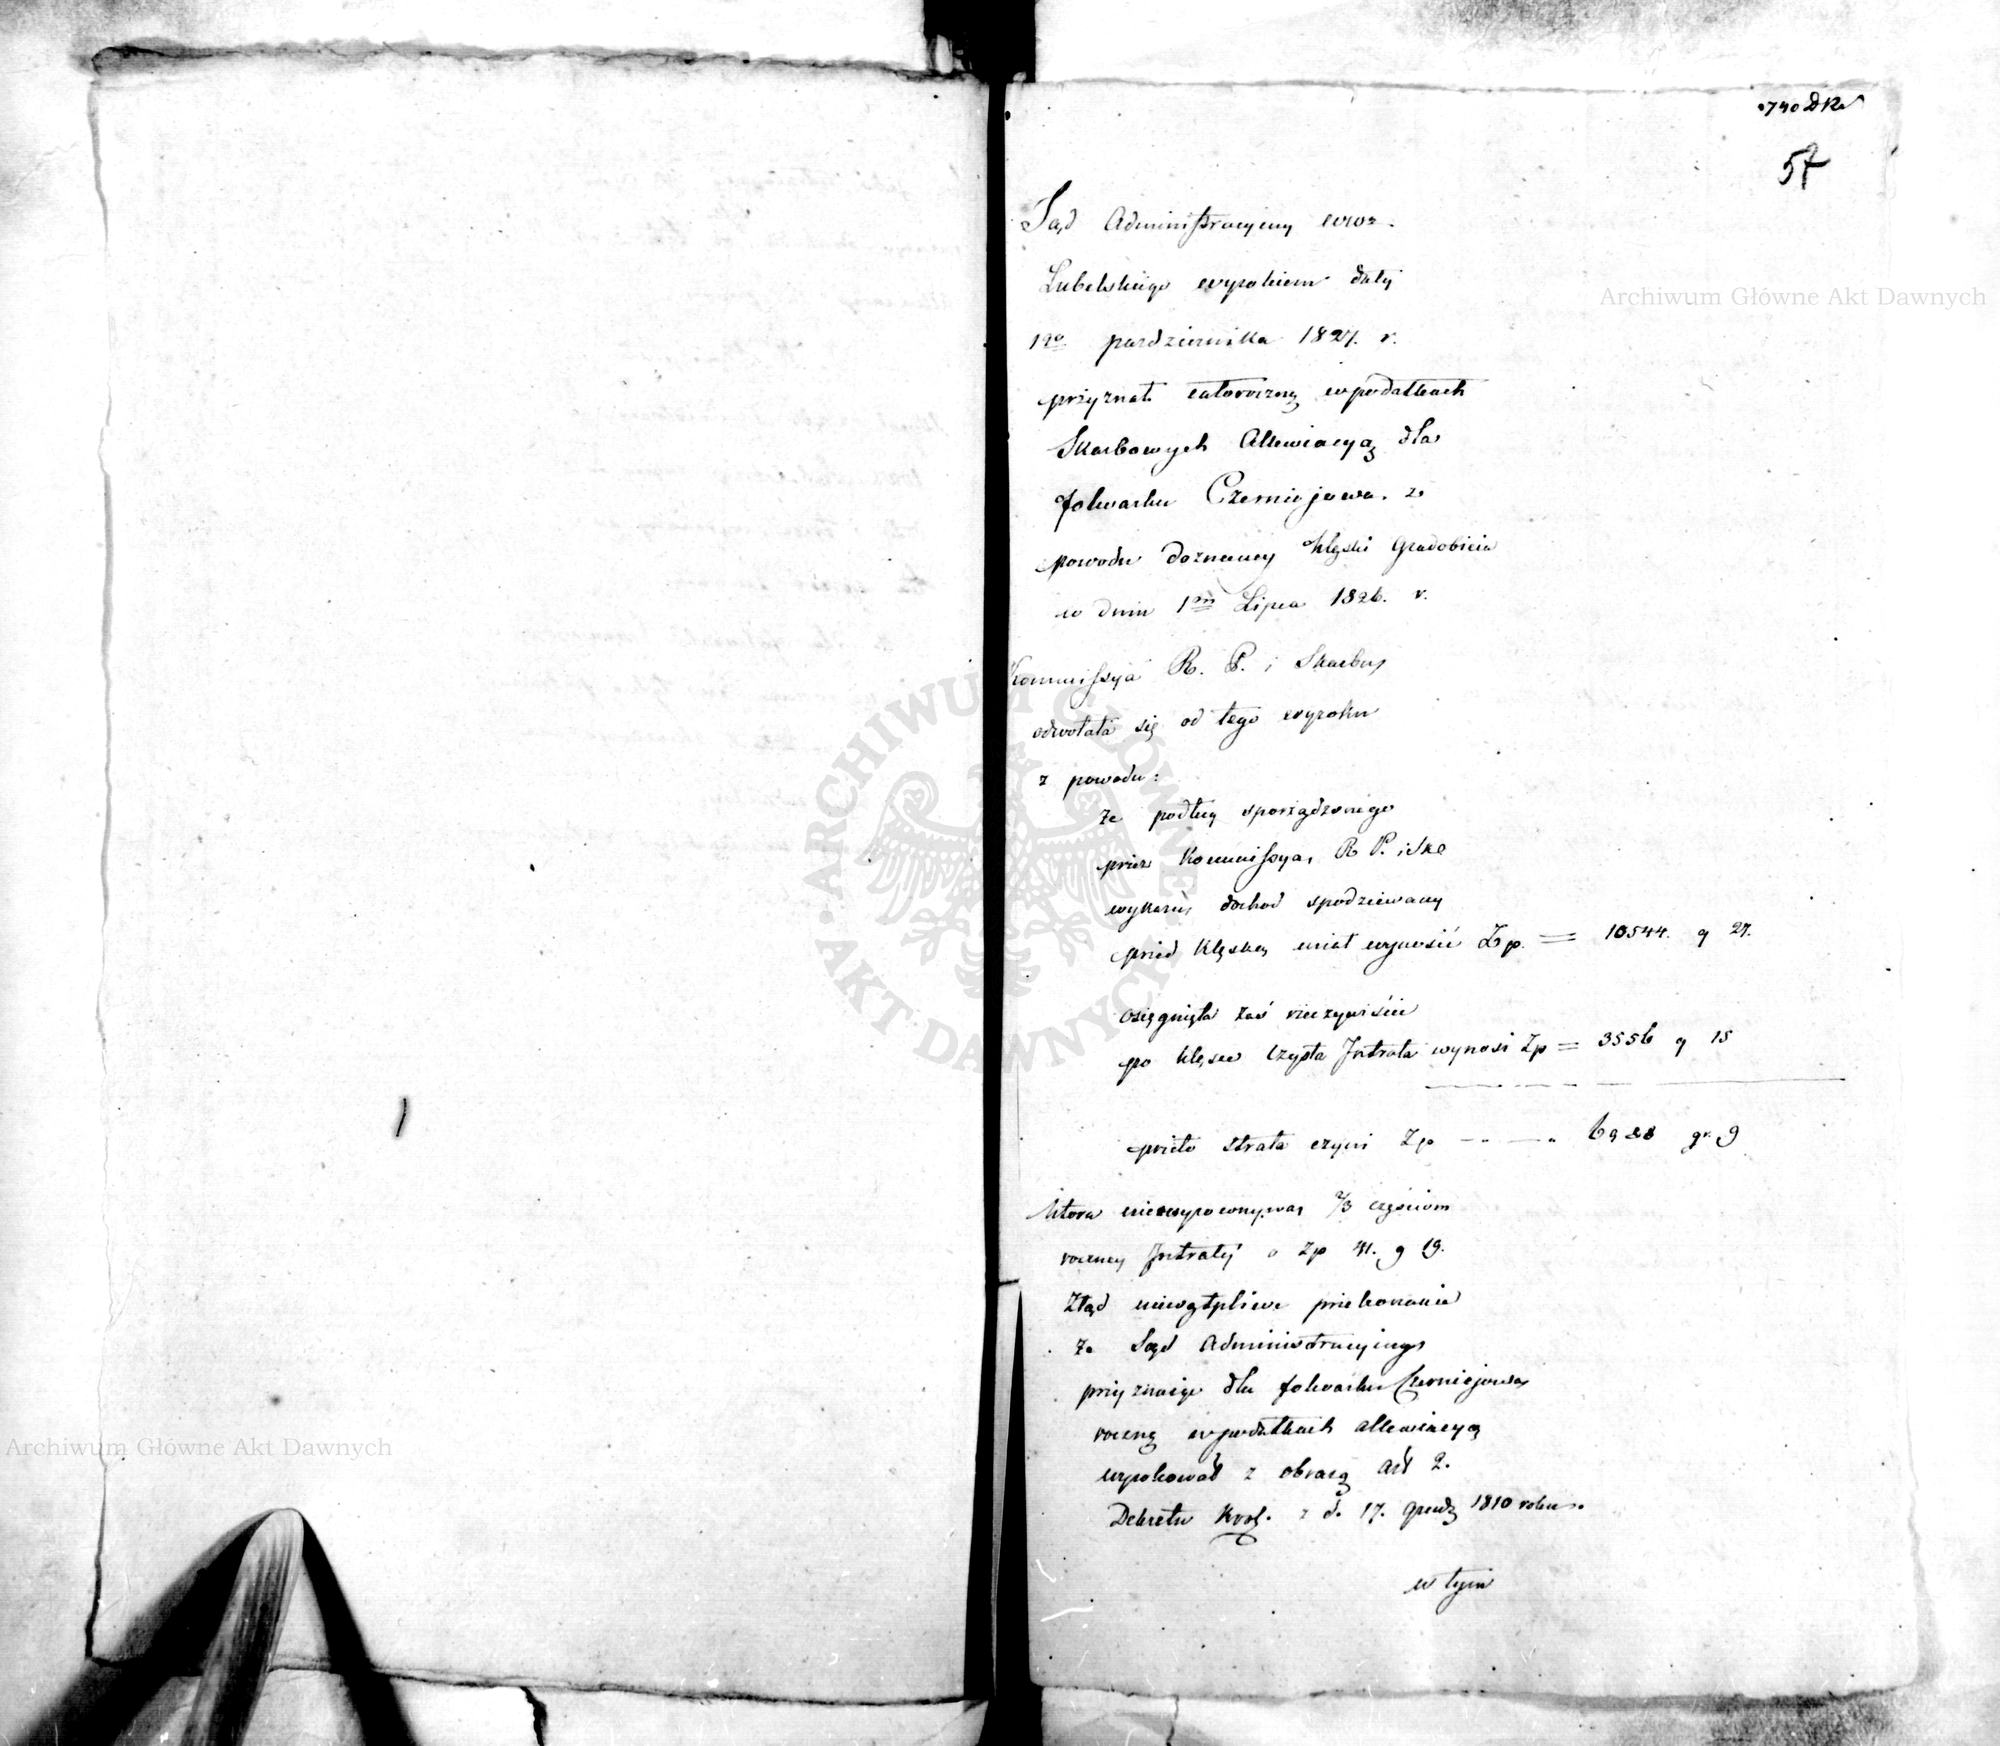 740 DR
57
Sąd Administracyiny woz.
Lubelskiego wyrokiem daty
12º pazdziernika 1827. r.
przyznał całoroczną w podatkach
Skarbowych Allewiacyą dla
folwarku Czerniejowa. z
powodu doznaney klęski Gradobicia
w dniu 1m Lipca 1826. r.
Kommissya R. P. i Skarbu
odwołała się od tego wyroku
z powodu:
że podług sporządzonego
przez Kommissyą R P. i Ska
wykazu, dochod spodziewany
przed klęską miał wynosić Zp. = 10544. g 27.
osięgnięta zaś rzeczywiście
po klęsce czysta Intrata wynosi Zp = 3556 g 15
przeto strata czyni Zp — 6988 gr. 9
która niewyrownywa 2/3 częściom
roczney Intraty o Zp 41. g 19.
Ztąd niewątpliwe przekonanie
że Sąd Administracyiny
przyznaiąc dla folwarku Czerniejowa
roczną w podatkach allewiacyą
wyrokował z obrazą Art 2.
Dekretu Krol. z d. 17. grud. 1810 roku.
w tym
Archiwum Główne Akt Dawnych
Archiwum Główne Akt Dawnych
ARCHIWUM GŁÓWNE AKT DAWNYCH